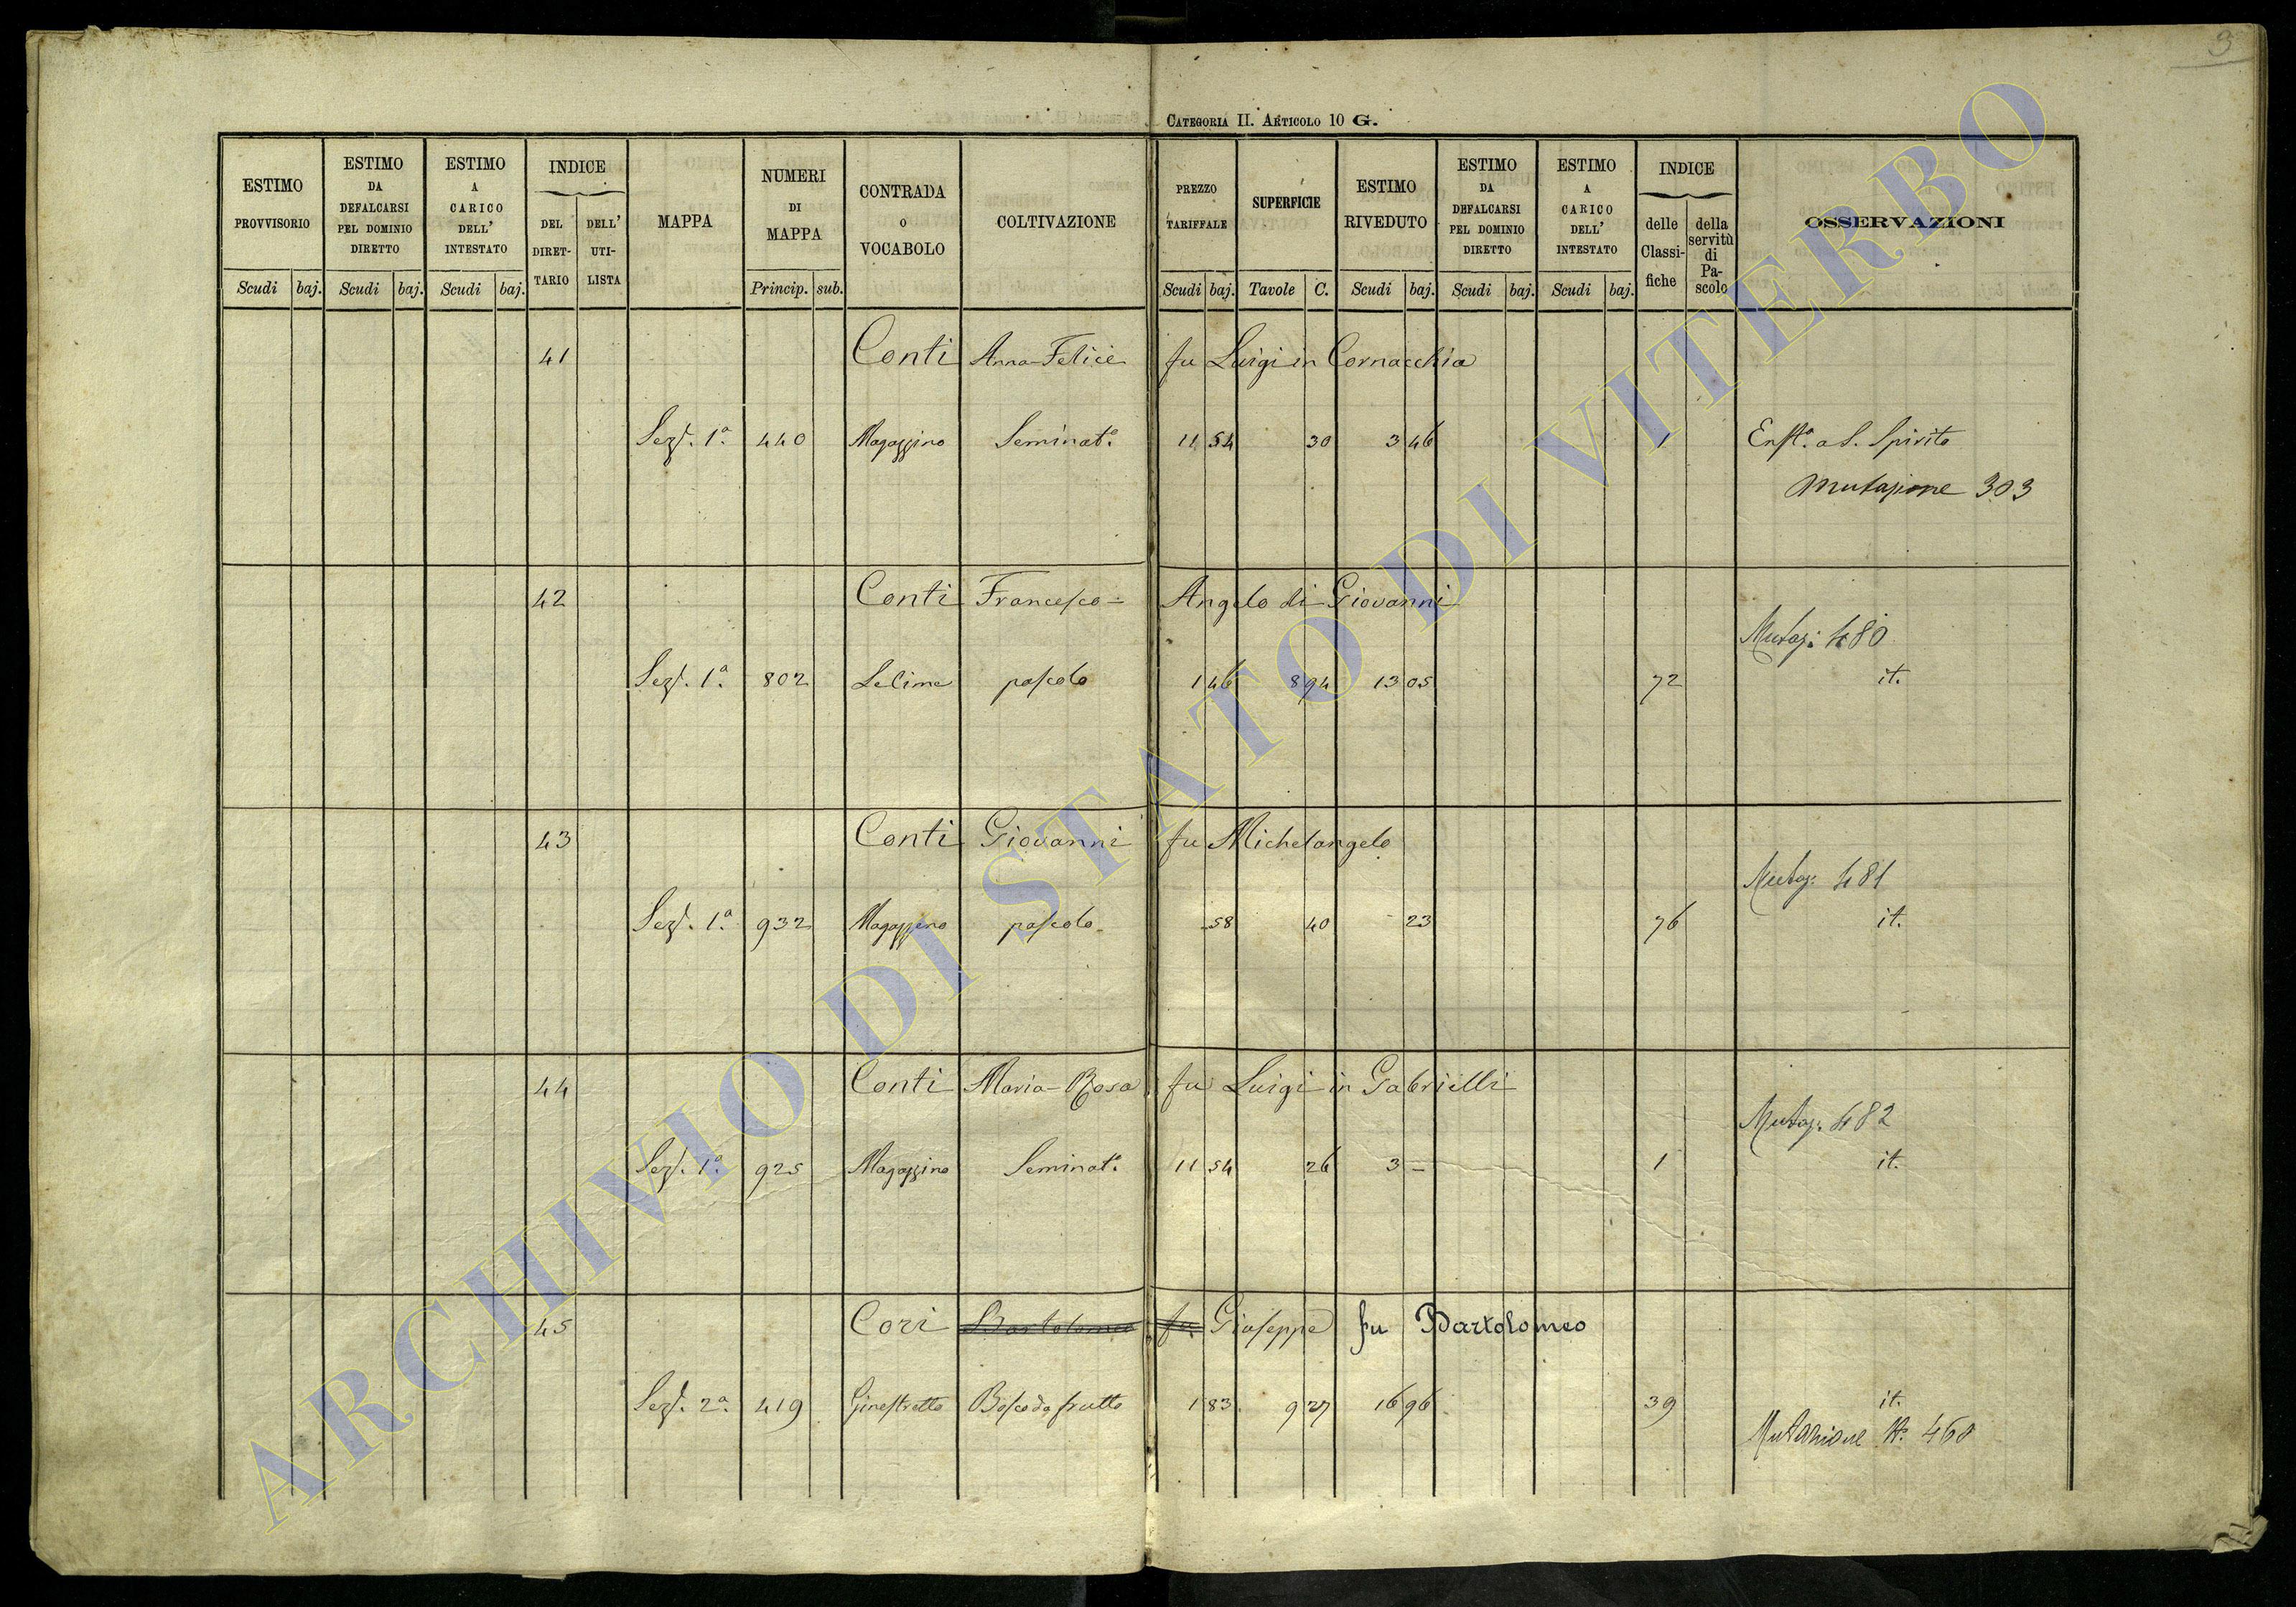 3
CATEGORIA II. ARTICOLO 10 G.
ESTIMO PROVVISORIO Scudi baj.
ESTIMO DA DEFALCARSI PEL DOMINIO DIRETTO Scudi baj.
ESTIMO A CARICO DELL' INTESTATO Scudi baj.
INDICE DEL DIRET-TARIO DELL' UTI-LISTA
MAPPA
NUMERI DI MAPPA Princip. sub.
CONTRADA O VOCABOLO
COLTIVAZIONE
PREZZO TARIFFALE Scudi baj.
SUPERFICIE Tavole C.
ESTIMO RIVEDUTO Scudi baj.
ESTIMO DA DEFALCARSI PEL DOMINIO DIRETTO Scudi baj.
ESTIMO A CARICO DELL' INTESTATO Scudi baj.
INDICE delle Classi-fiche della servitù di Pa-scolo
OSSERVAZIONI
41 Conti Anna-Felice fu Luigi in Cornacchia
Sez. 1ª 440 Magazzino Seminatº 11 54 30 3 46 1 Enftª a S. Spirito
Mutazione 303
42 Conti Francesco- Angelo di Giovanni
Mutaz: 480
Sez. 1ª 802 Le Cime pascolo 1 46 8 94 13 05 72 it.
43 Conti Giovanni fu Michelangelo
Mutaz: 481
Sez. 1ª 932 Magazzino pascolo 58 40 23 76 it.
44 Conti Maria-Rosa fu Luigi in Gabrielli
Mutaz: 482
Sez. 1ª 925 Magazzino Seminatº 11 54 26 3 – 1 it.
45 Cori Bartolomeo fu Giuseppe fu Bartolomeo
Sez. 2ª 419 Ginestretto Bosco da frutto 1 83 9 27 16 96 39 it.
Mutazione Nº 460
ARCHIVIO DI STATO DI VITERBO